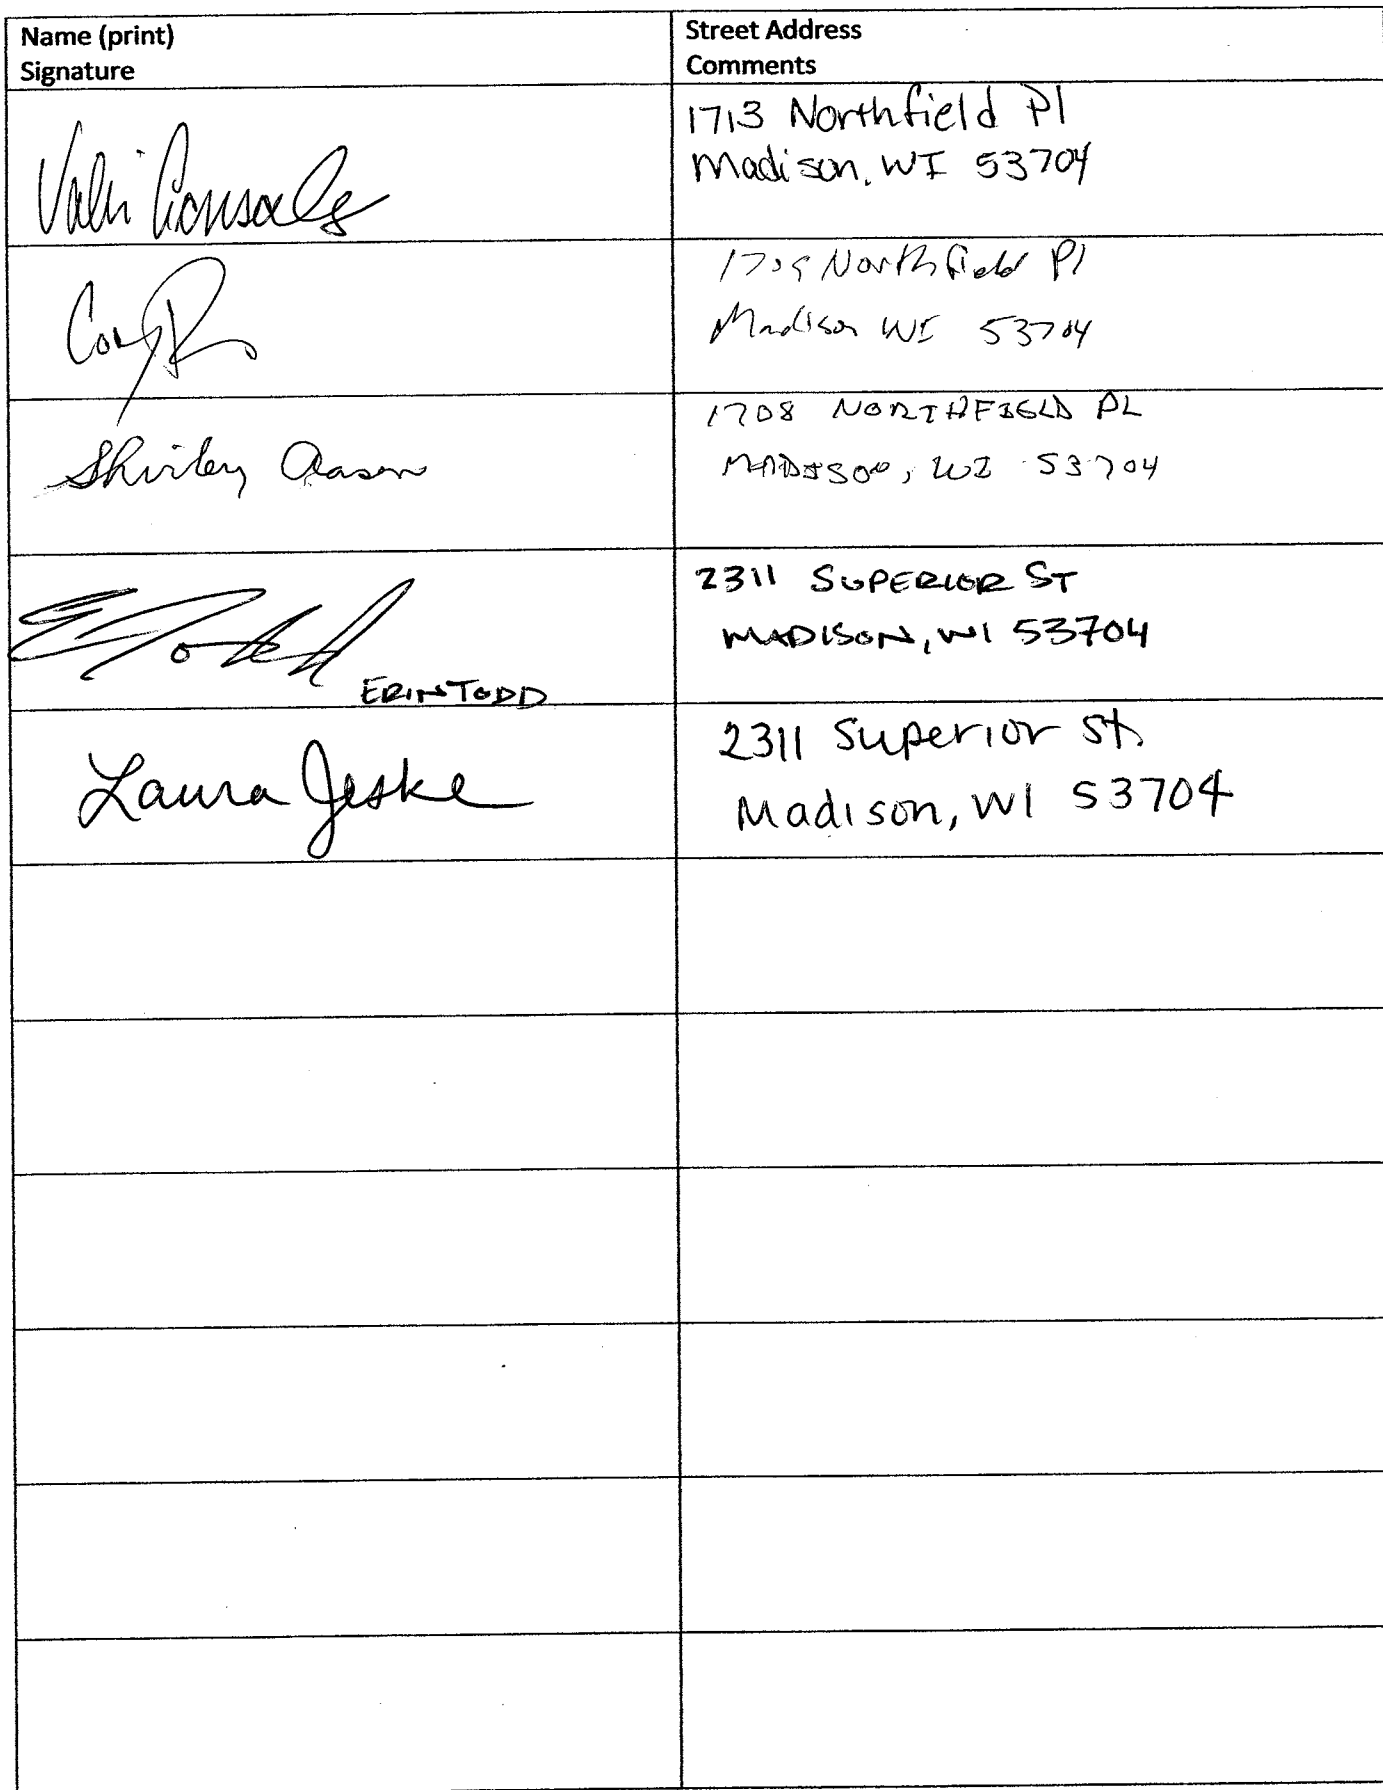 Name (print)
Signature
Street Address
Comments
1713 Northfield Pl
Madison, WI 53704
1709 Northfield Pl
Madison WI 53704
Shirley Aasen
1708 NORTHFIELD PL
MADISON, WI 53704
ERIN TODD
2311 SUPERIOR ST
MADISON, WI 53704
Laura Jeske
2311 Superior St.
Madison, WI 53704